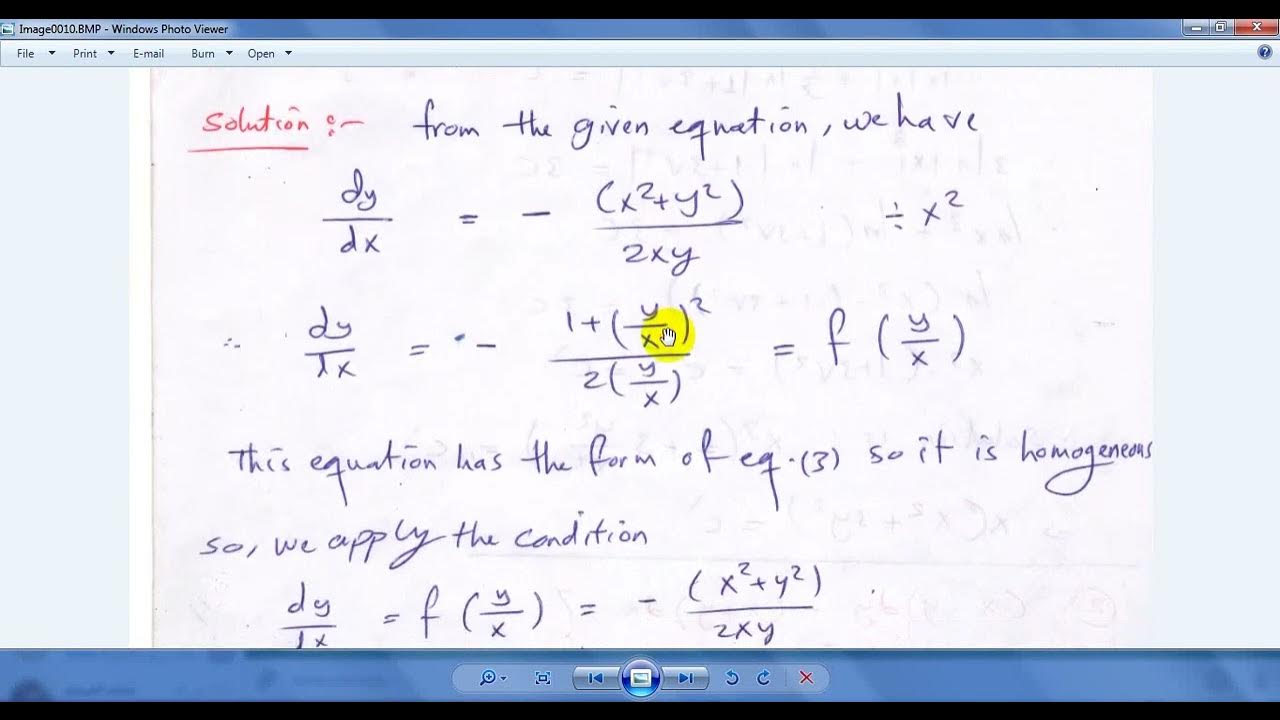 Image0010.BMP - Windows Photo Viewer
File Print E-mail Burn Open
Solution :- from the given equation, we have
dy/dx = - (x²+y²)/2xy ÷ x²
∴ dy/dx = - (1+(y/x)²)/(2(y/x)) = f(y/x)
This equation has the form of eq.(3) so it is homogeneous
so, we apply the condition
dy/dx = f(y/x) = - (x²+y²)/2xy